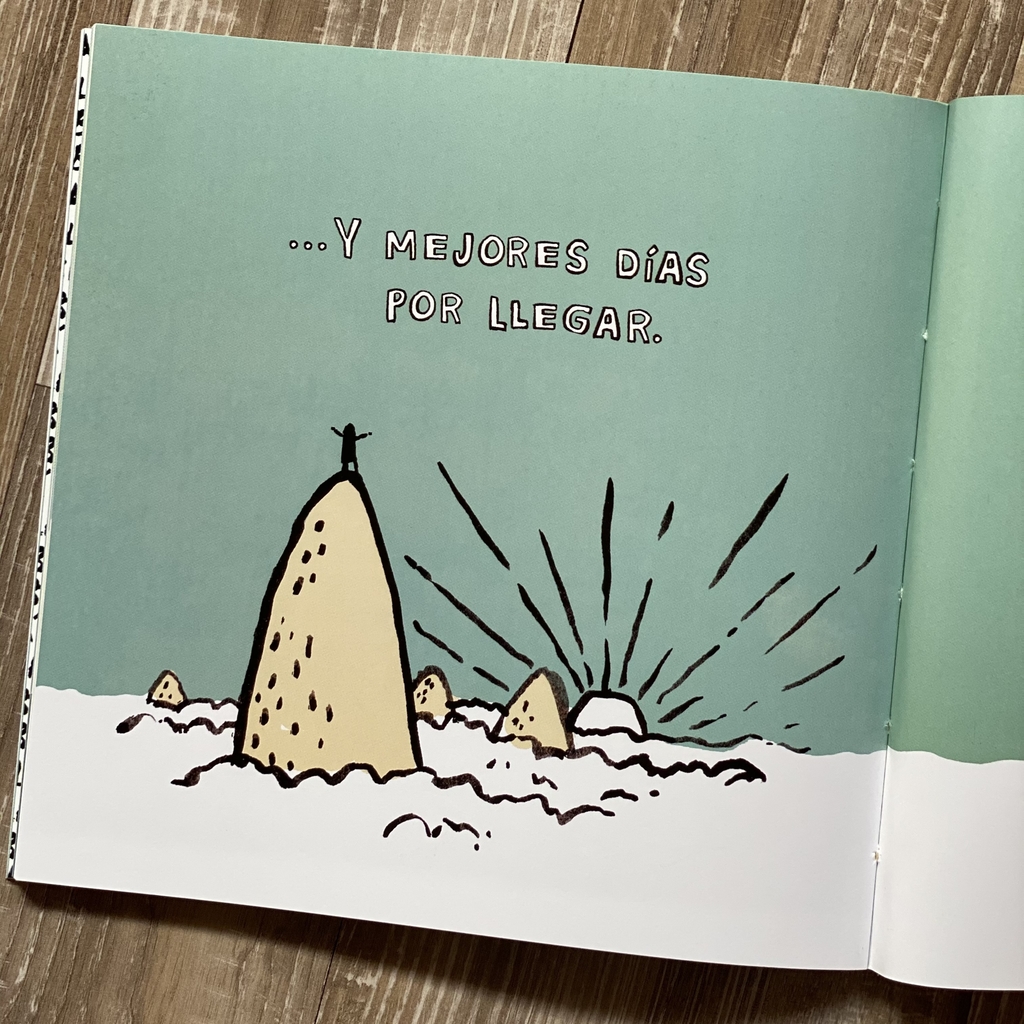 ...Y MEJORES DíAS
POR LLEGAR.